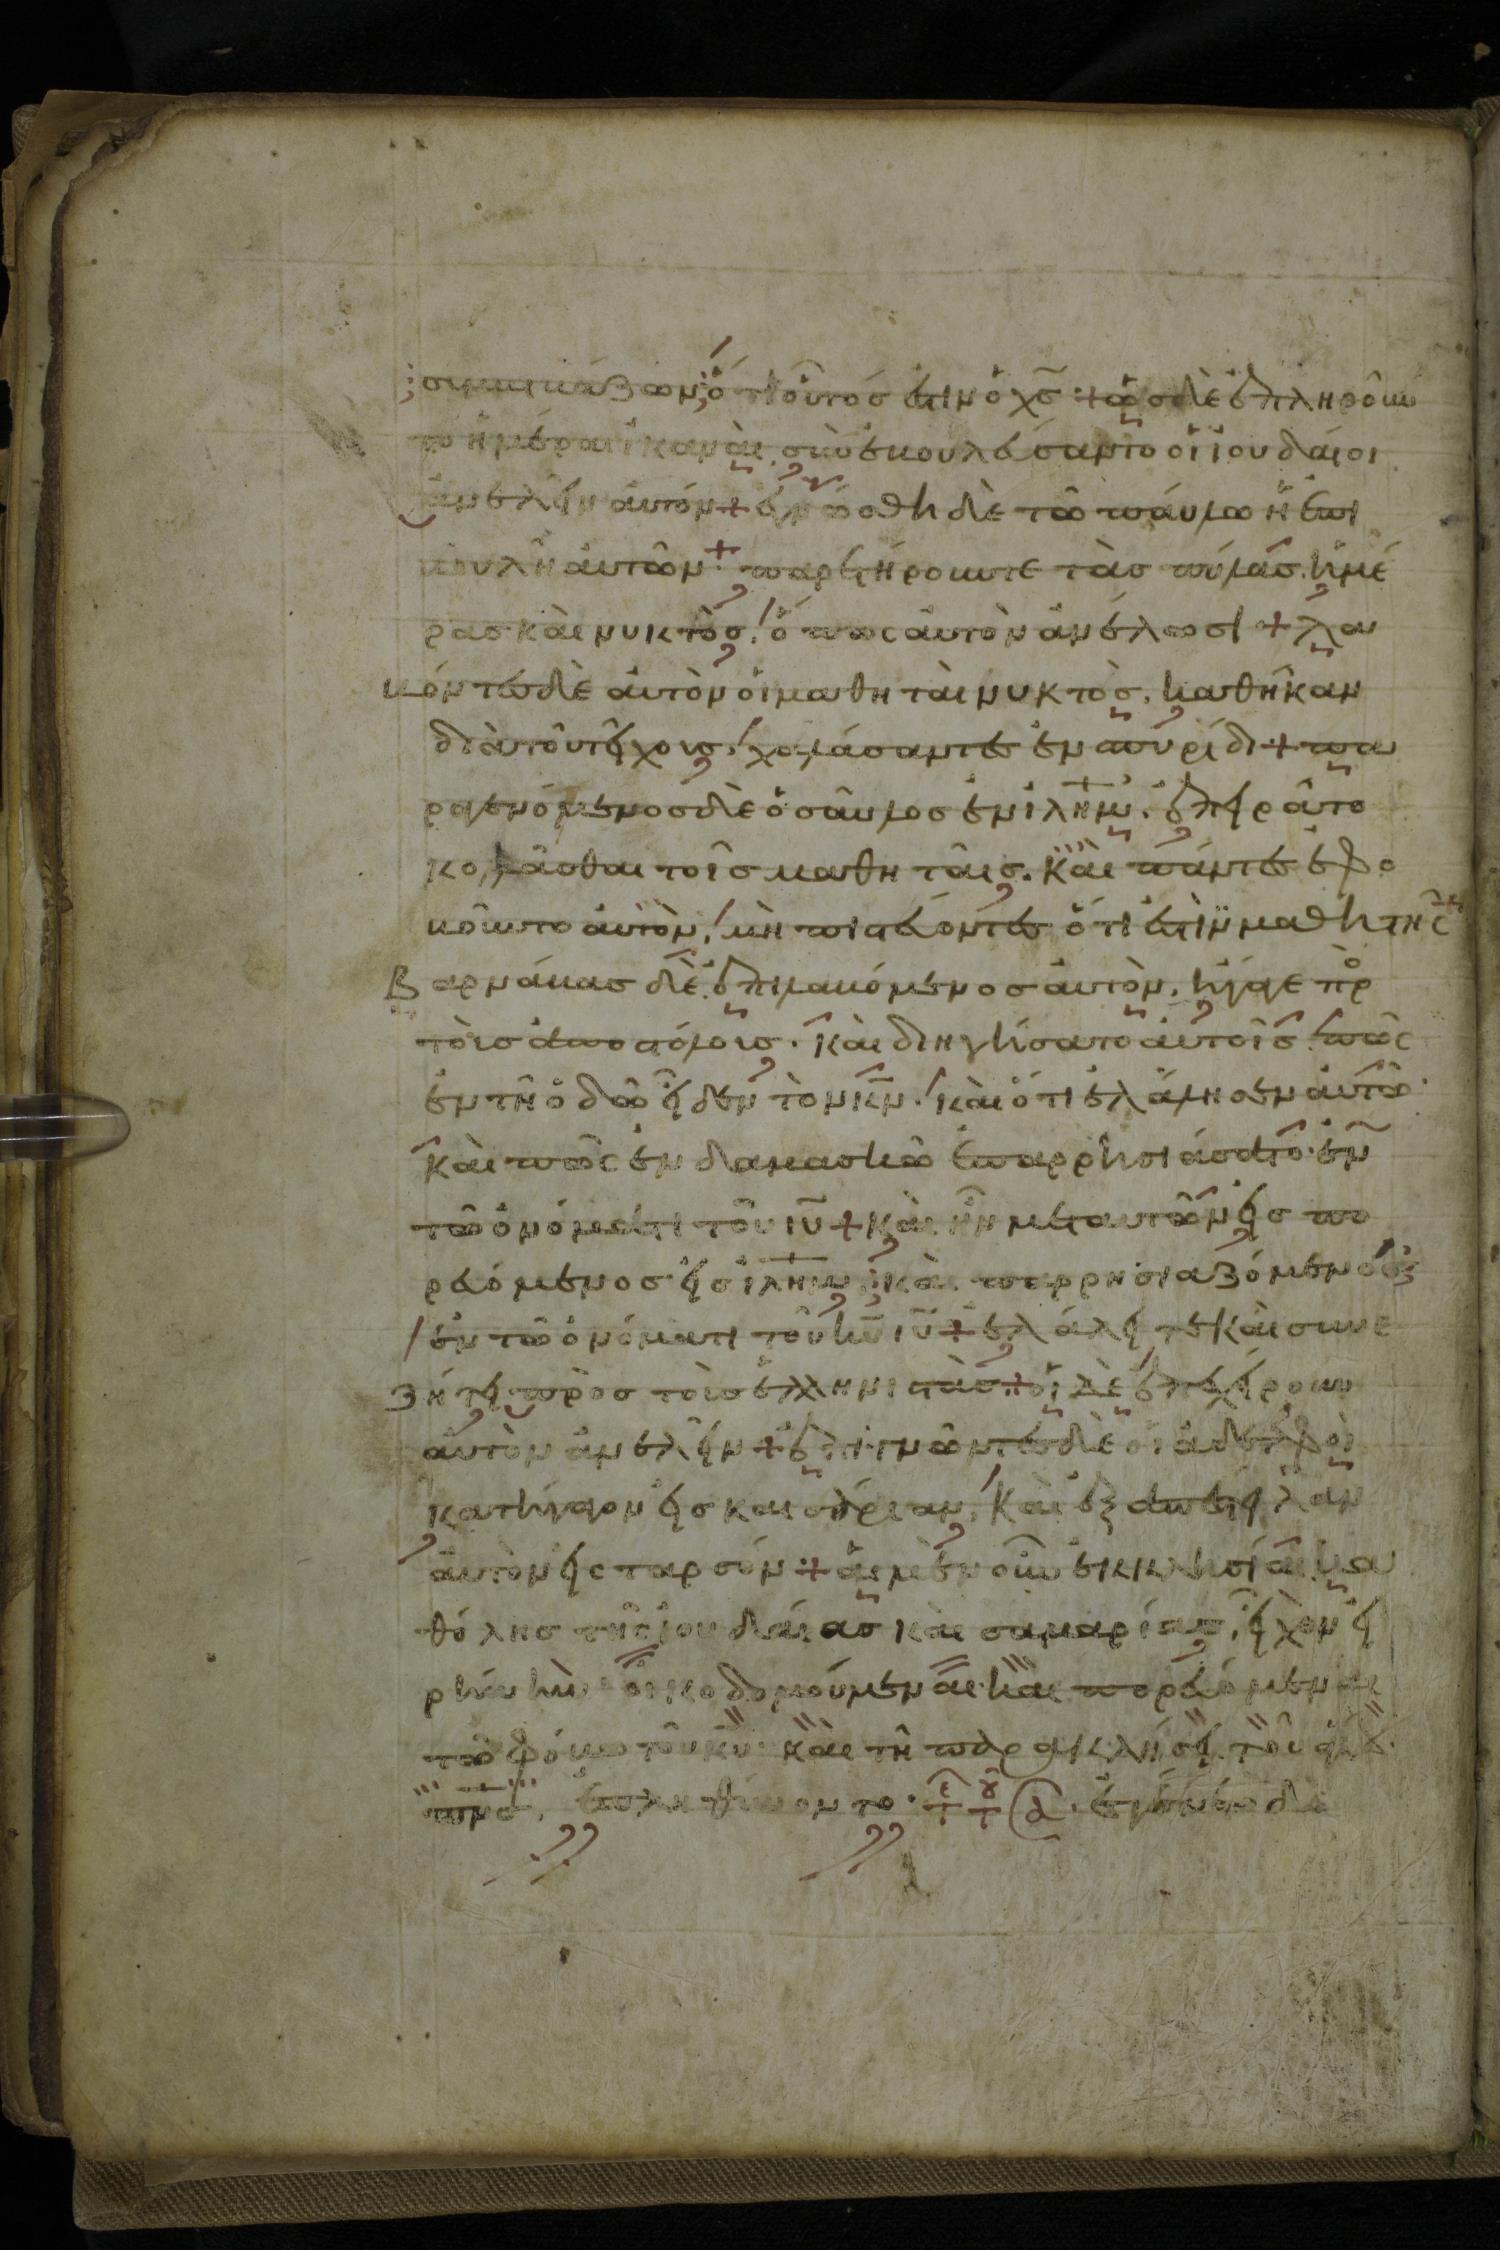 συμβιβάζων ὅτι οὗτός ἐστιν ὁ χς̅ + ὡς δὲ ἐπληροῦν
το ἡμέραι ἱκαναὶ, συνεβουλεύσαντο οἱ ἰουδαῖοι
ἀνελεῖν αὐτόν + ἐγνώσθη δὲ τῶ παύλω ἡ ἐπι
βουλὴ αὐτῶν + παρετήρουν τε τὰς πύλας ἡμέ
ρας καὶ νυκτὸς, ὅπως αὐτὸν ἀνέλωσι + λα
βόντες δὲ αὐτὸν οἱ μαθηταὶ νυκτὸς, καθῆκαν
διὰ τοῦ τείχους, χαλάσαντες ἐν σπυρίδι + πα
ραγενόμενος δὲ ὁ σαῦλος ἐν ιλημ, ἐπειρᾶτο
κολλᾶσθαι τοῖς μαθηταῖς. καὶ πάντες ἐφο
βοῦντο αὐτὸν, μὴ πιστεύοντες ὅτι ἐστὶν μαθητής
Βαρνάβας δὲ ἐπιλαβόμενος αὐτὸν, ἤγαγε πρ
τοὺς ἀποστόλους. καὶ διηγήσατο αὐτοῖς πῶς
ἐν τῆ ὁδῶ εἶδεν τὸν κν̅. καὶ ὅτι ἐλάλησεν αὐτῶ
καὶ πῶς ἐν δαμασκῶ ἐπαρρησιάσατο ἐν
τῶ ὀνόματι τοῦ ιυ̅ + καὶ ἦν μετ αὐτῶν εἰσπο
ρευόμενος εἰς ιλημ καὶ παρρησιαζόμενος
ἐν τῶ ὀνόματι τοῦ κυ̅ ιυ̅ + ἐλάλει τε καὶ συνε
ζήτει πρὸς τοὺς ἑλληνιστάς + οἱ δὲ ἐπεχείρουν
αὐτὸν ἀνελεῖν + ἐπιγνόντες δὲ οἱ ἀδελφοὶ
κατήγαγον εἰς καισάρειαν, καὶ ἐξαπέστειλαν
αὐτὸν εἰς ταρσόν + αἱ μὲν οὖν ἐκκλησίαι κα
θόλης τῆς ἰουδαίας καὶ σαμαρίας, εἶχον εἰ
ρήνην οἰκοδομούμεναι καὶ πορευόμεναι
τῶ φόβω τοῦ κυ̅ καὶ τῆ παρακλήσει τοῦ ἁγίου
πνσ, ἐπληθύνοντο. ἐγένετο δὲ